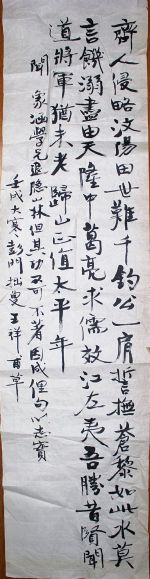 齊人侵略汶陽田世難千鈞公一肩誓撫蒼黎如此水莫
言饑溺盡由天隆中葛亮求儒效江左夷吾勝昔賢聞
道將軍猶未老歸山正值太平年
聞 學兄退隱山林但其功不可不著因成俚句以志實
壬戌大寒彭門拙叟王祥甫草